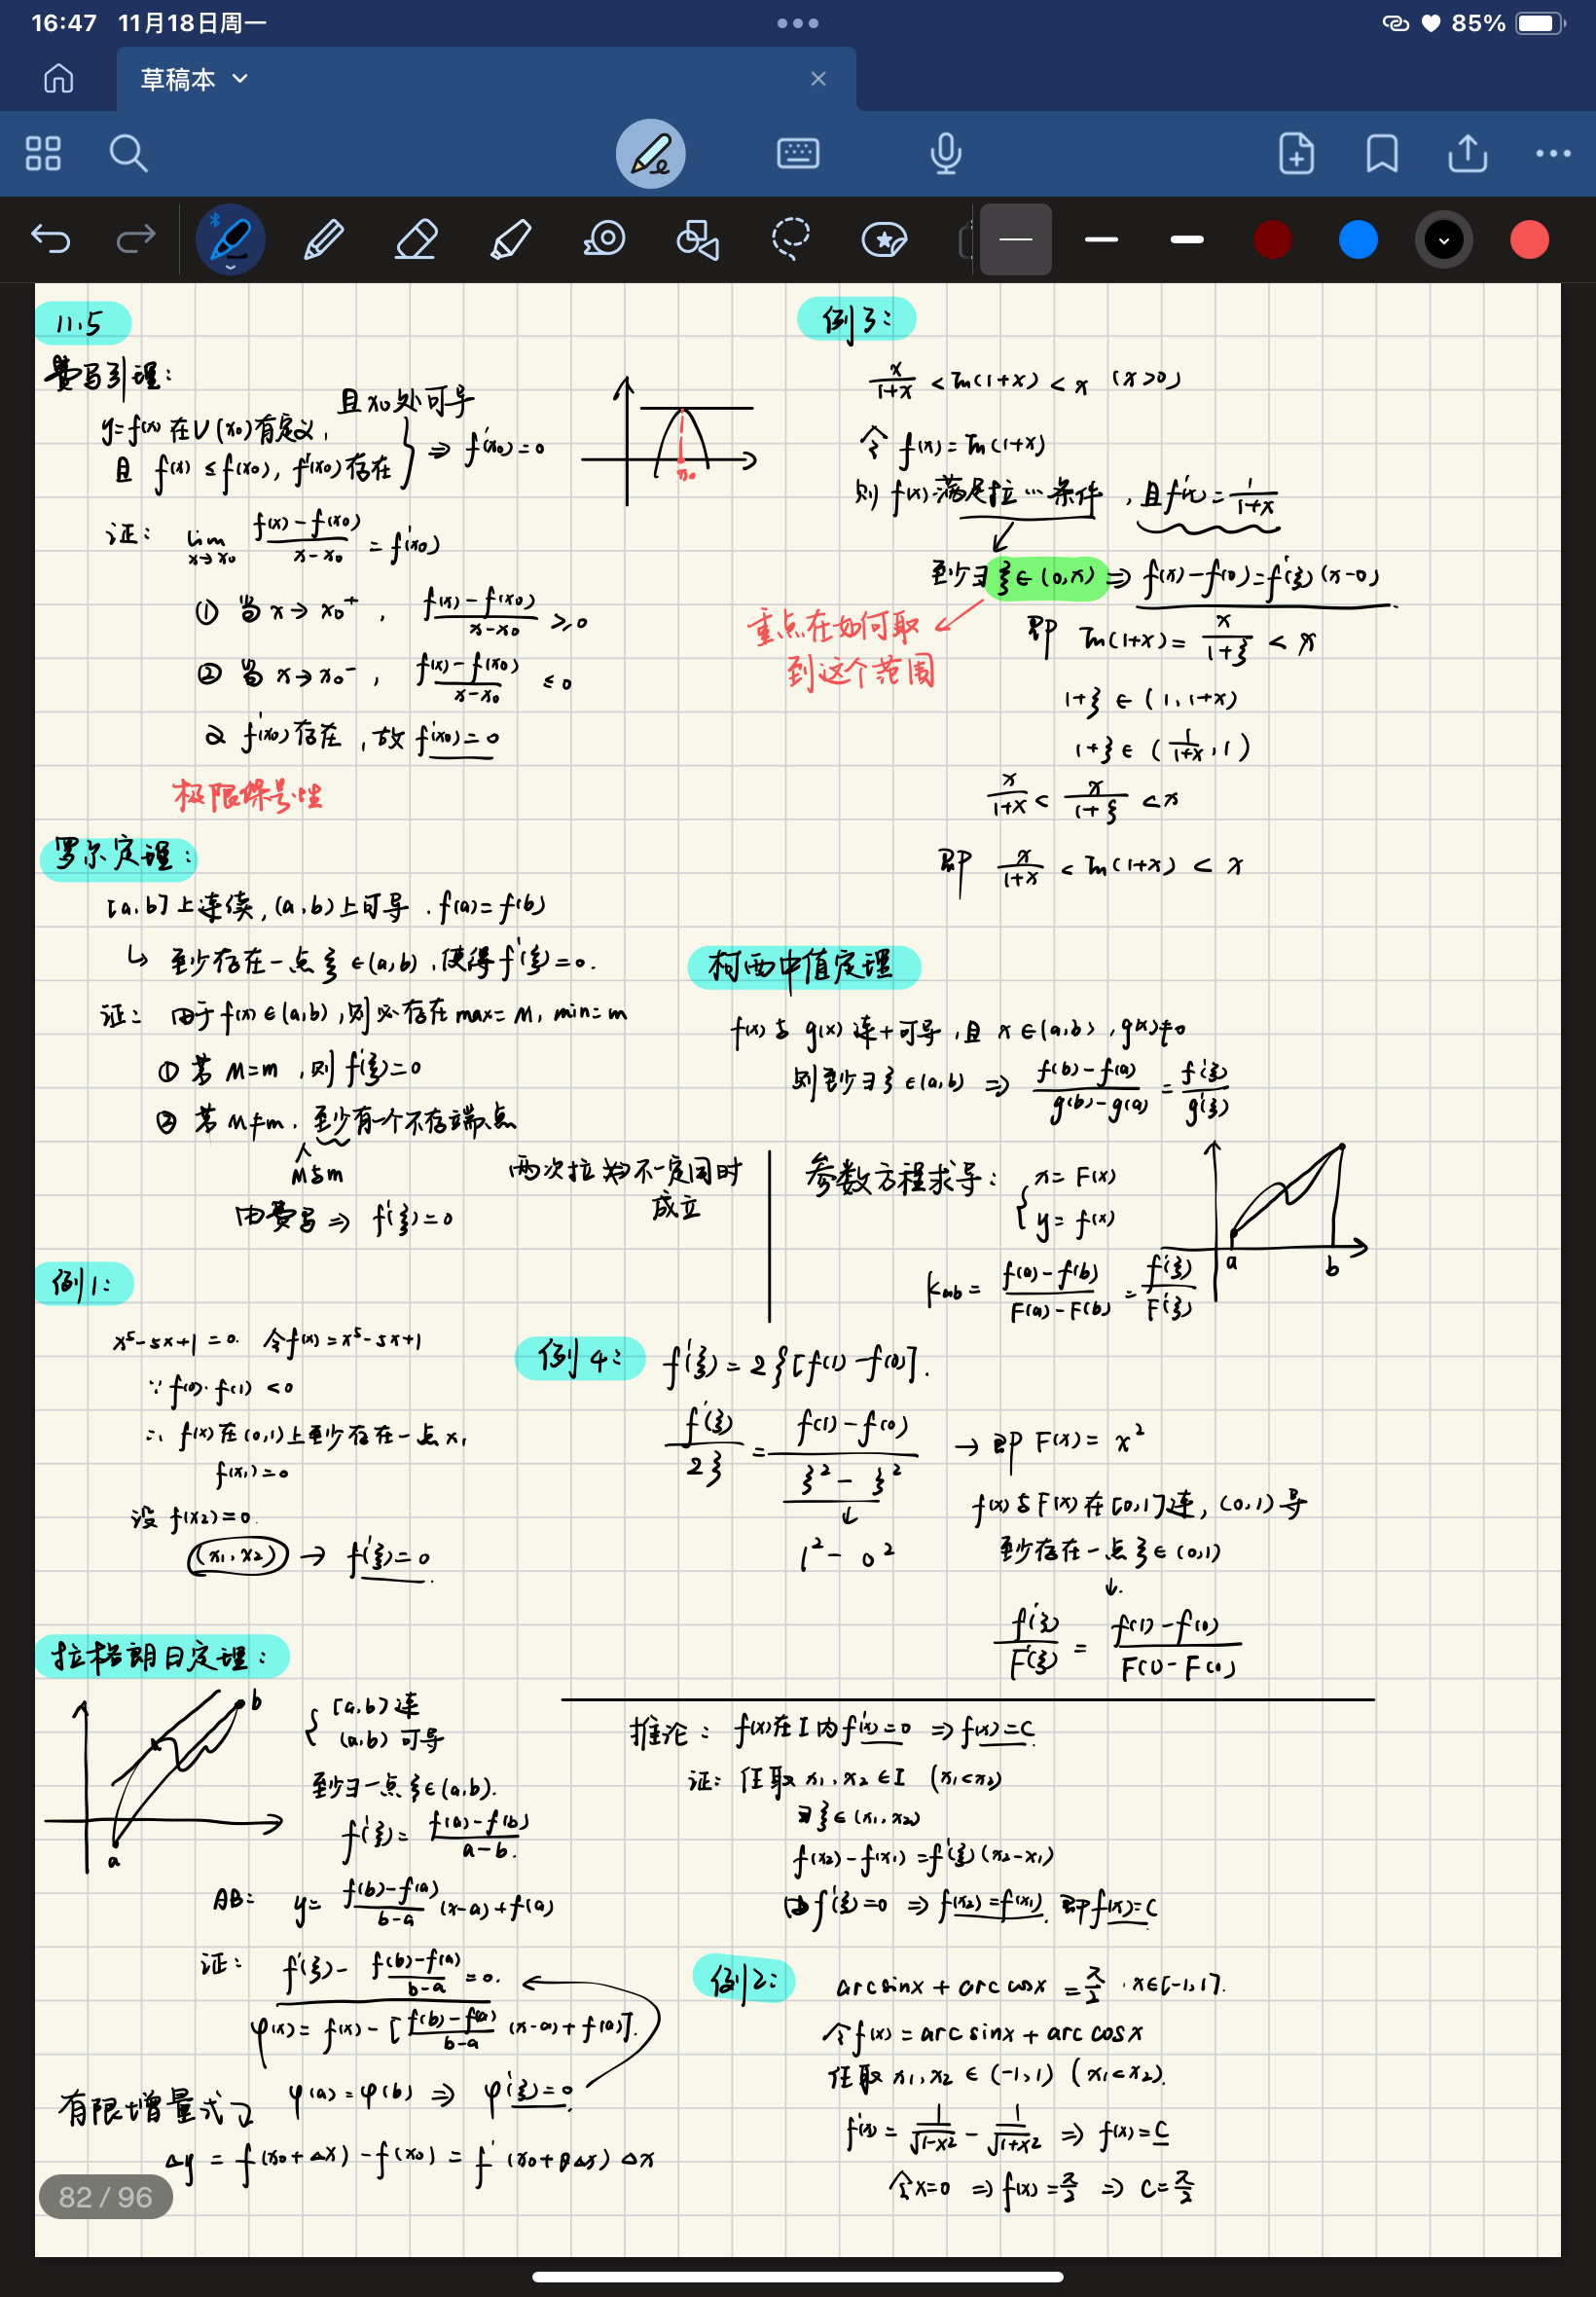 16:47 11月18日周一
85%
草稿本
11.5
费马引理:
且x₀处可导
y=f(x)在U(x₀)有定义,
且 f(x)≤f(x₀), f'(x₀)存在 } ⇒ f'(x₀)=0
x₀
证: lim x→x₀ (f(x)-f(x₀))/(x-x₀) = f'(x₀)
① 当 x→x₀⁺, (f(x)-f(x₀))/(x-x₀) ≥0
② 当 x→x₀⁻, (f(x)-f(x₀))/(x-x₀) ≤0
又 f'(x₀)存在,故 f'(x₀)=0
极限保号性
罗尔定理:
[a,b]上连续,(a,b)上可导.f(a)=f(b)
↳ 至少存在一点ξ∈(a,b),使得f'(ξ)=0.
证: 由于f(x)∈(a,b),则必存在max=M, min=m
① 若 M=m ,则 f'(ξ)=0
② 若 M≠m. 至少有一个不存端点
M与m
由费马 ⇒ f'(ξ)=0
例1:
x⁵-5x+1=0. 令f(x)=x⁵-5x+1
∵ f(0)·f(1)<0
∴ f(x)在(0,1)上至少存在一点x₁
f(x₁)=0
设 f(x₂)=0.
(x₁,x₂) → f'(ξ)=0.
拉格朗日定理:
b
a
{ [a,b]连
(a,b)可导
至少∃一点ξ∈(a,b).
f'(ξ)= (f(a)-f(b))/(a-b).
AB: y= (f(b)-f(a))/(b-a) (x-a)+f(a)
证: f'(ξ)- (f(b)-f(a))/(b-a) =0.
φ(x)= f(x)-[(f(b)-f(a))/(b-a) (x-a)+f(a)].
φ(a)=φ(b) ⇒ φ'(ξ)=0.
有限增量式
Δy = f(x₀+Δx)-f(x₀) = f'(x₀+θΔx)Δx
82 / 96
例3:
x/(1+x) < ln(1+x) < x (x>0)
令 f(x)=ln(1+x)
则 f(x)满足拉…条件,且f'(x)=1/(1+x)
至少∃ξ∈(0,x) ⇒ f(x)-f(0)=f'(ξ)(x-0).
重点在如何取
到这个范围
即 ln(1+x)= x/(1+ξ) < x
1+ξ ∈ (1,1+x)
1+ξ ∈ (1/(1+x),1)
x/(1+x) < x/(1+ξ) < x
即 x/(1+x) < ln(1+x) < x
柯西中值定理
f(x)与g(x)连+可导,且 x∈(a,b),g'(x)≠0
则至少∃ξ∈(a,b) ⇒ (f(b)-f(a))/(g(b)-g(a)) = f'(ξ)/g'(ξ)
两次拉的不一定同时
成立
参数方程求导: { x=F(x)
y=f(x)
a b
k_ab = (f(a)-f(b))/(F(a)-F(b)) = f'(ξ)/F'(ξ)
例4: f'(ξ)=2ξ[f(1)-f(0)].
f'(ξ)/2ξ = (f(1)-f(0))/(ξ²-ξ²) → 即 F(x)=x²
1²-0²
f(x)与F(x)在[0,1]连, (0,1)导
至少存在一点ξ∈(0,1)
f'(ξ)/F'(ξ) = (f(1)-f(0))/(F(1)-F(0))
推论: f(x)在I内f'(x)=0 ⇒ f(x)=C.
证: 任取x₁,x₂∈I (x₁<x₂)
∃ξ∈(x₁,x₂)
f(x₂)-f(x₁)=f'(ξ)(x₂-x₁)
由f'(ξ)=0 ⇒ f(x₂)=f(x₁). 即f(x)=C.
例2: arcsinx + arccosx = π/2 .x∈[-1,1].
令f(x)=arcsinx+arccosx
任取x₁,x₂∈(-1,1) (x₁<x₂).
f'(x)= 1/√(1-x²) - 1/√(1+x²) ⇒ f(x)=C
令x=0 ⇒ f(x)=π/2 ⇒ C=π/2